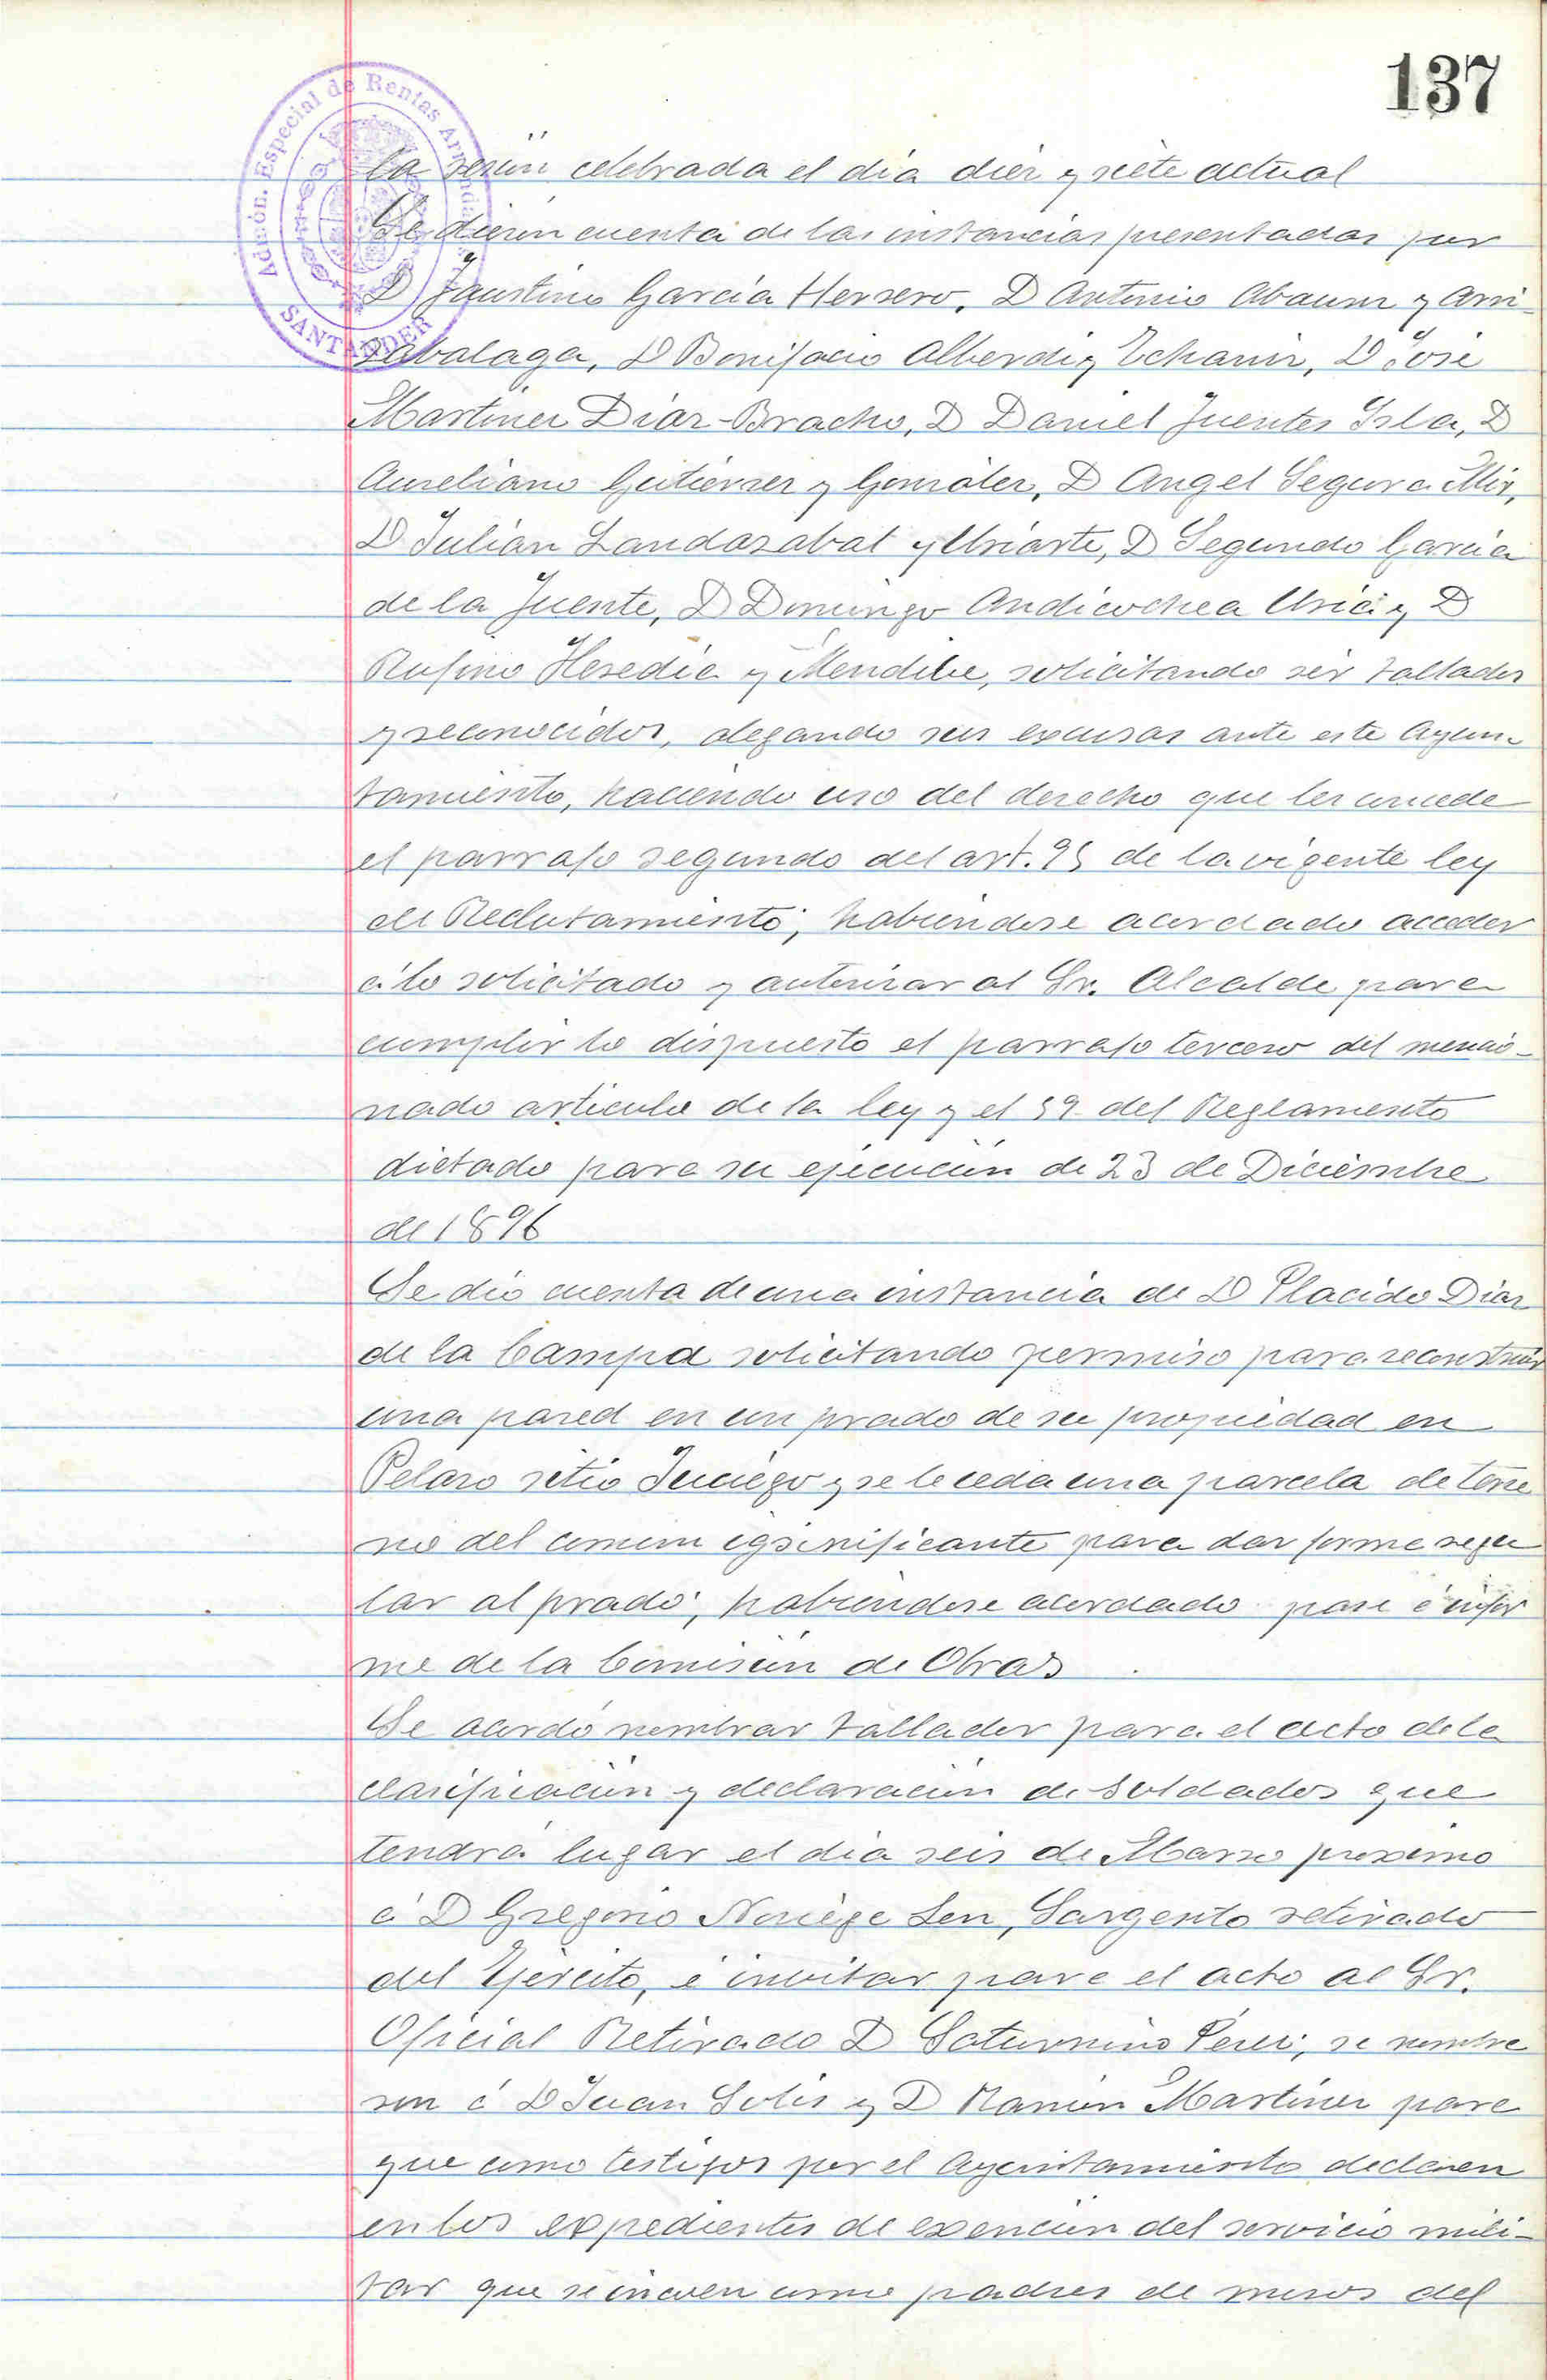 137
Admón. Especial de Rentas Arrendadas
SANTANDER
la sesión celebrada el dia diez y siete actual
Se dieron cuenta de las instancias presentadas por
D Faustino Garcia Herrero, D Antonio Abaunz y Arri-
zabalaga, D Bonifacio Alberdi y Echaniz, D José
Martinez Diaz-Bracho, D Daniel Fuentes Isla, D
Aureliano Gutierrez y González, D Angel Segura Mir,
D Julián Landazabal y Uriarte, D Segundo Garcia
de la Fuente, D Domingo Andicochea Uria y D
Rufino Heredia y Mendibe, solicitando ser tallados
y reconocidos, alegando sus excusas ante este Ayun-
tamiento, haciendo uso del derecho que les concede
el parrafo segundo del art. 95 de la vigente ley
de Reclutamiento; habiendose acordado acceder
á lo solicitado y autorizar al Sr. Alcalde para
cumplir lo dispuesto el parrafo tercero del mencio-
nado articulo de la ley y el 59 del Reglamento
dictado para su ejecución de 23 de Diciembre
de 1896
Se dio cuenta de una instancia de D Placido Diaz
de la Campa solicitando permiso para reconstruir
una pared en un prado de su propiedad en
Pelazo sitio y se le ceda una parcela de terre
no del comun para dar forma regu
lar al prado; habiendose acordado pase á infor
me de la Comisión de Obras
Se acordó nombrar tallador para el acto de la
clasificación y declaración de Soldados que
tendrá lugar el dia seis de Marzo proximo
á D Gregorio Noriega Sen, Sargento retirado
del Ejército, é invitar para el acto al Sr.
Oficial Retirado D Saturnino Pérez; se nombra
ron á D Juan Solis y D Ramón Martinez para
que como testigos por el Ayuntamiento declaren
en los expedientes de exención del servicio mili-
tar que se incoen como padres de mozos del